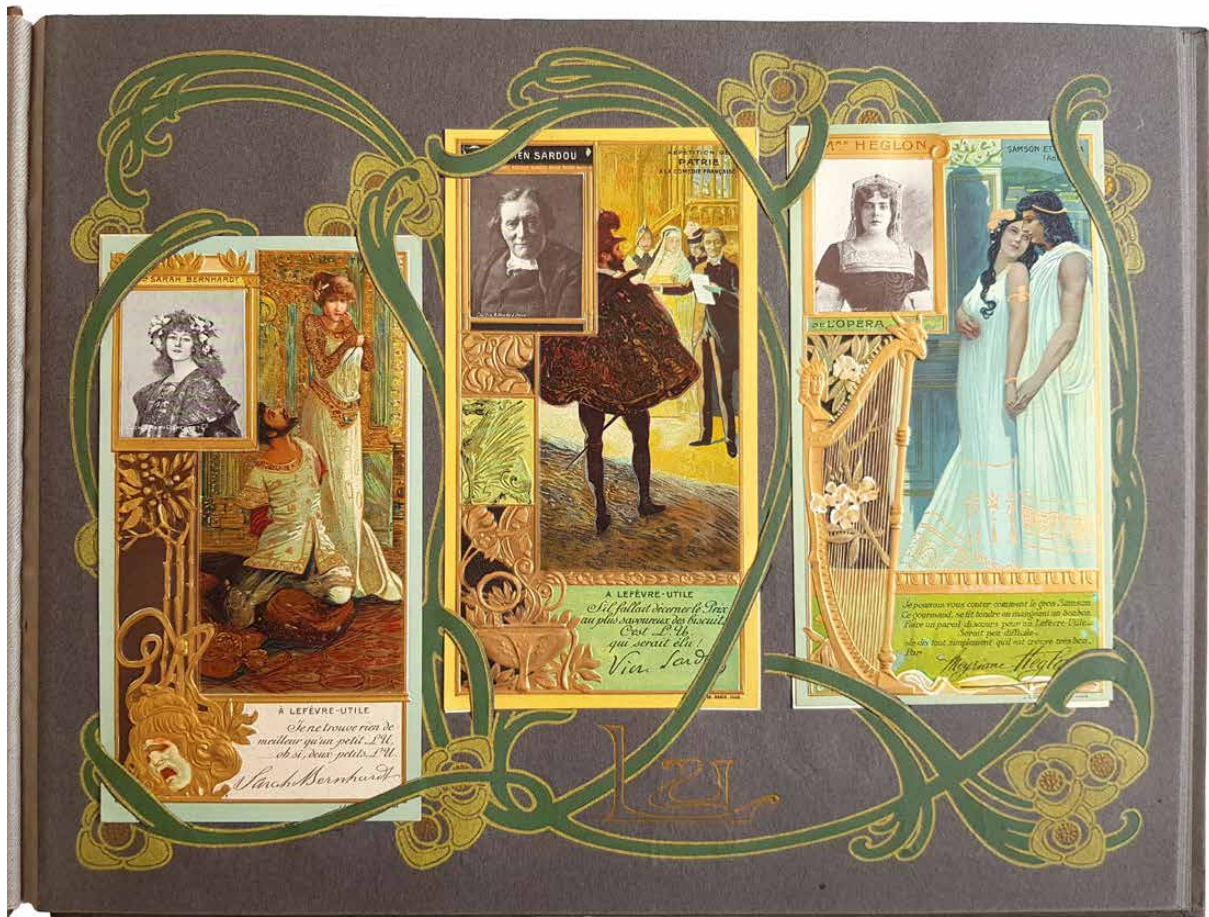 SARAH BERNHARDT
À LEFÈVRE-UTILE
Je ne trouve rien de
meilleur qu'un petit LU,
oh si, deux petits LU.
Sarah Bernhardt
EN SARDOU
RÉPÉTITION DE
PATRIE
A LA COMÉDIE FRANÇAISE
A LEFÈVRE-UTILE
S'il fallait décerner le Prix
au plus savoureux des biscuits
C'est L'U,
qui serait élu!
Vien Sardou
MME HEGLON
DE L'OPERA
SAMSON ET
Je pourrais vous conter comment le gros Samson
Ce gourmand, se fit tondre en mangeant un bonbon.
Faire un pareil discours pour un Lefèvre Utile...
Serait peu difficile...
Je dis tout simplement qu'il est trouvé très bon.
Par
Meyriane Héglon
LU